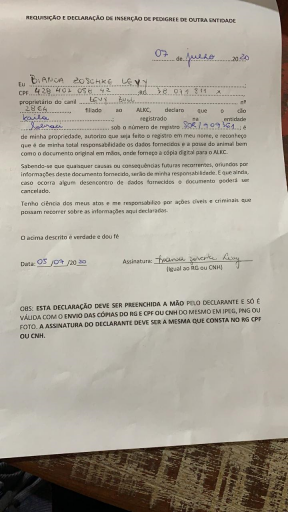 REQUISIÇÃO E DECLARAÇÃO DE INSERÇÃO DE PEDIGREE DE OUTRA ENTIDADE
07 de Julho 20 20
Eu BIANCA ZOSCHKE LEVY
CPF RG
proprietário do canil LEVY nº
filiado ao ALKC, declara que o cão
registrado na entidade
sob o número de registro e
de minha propriedade, autorizo que seja feito o registro em meu nome, e reconheço
que é de minha total responsabilidade os dados fornecidos e a posse do animal bem
como o documento original em mãos, onde forneço a cópia digital para o ALKC.
Sabendo-se que quaisquer causas ou consequências futuras recorrentes, oriundos por
informações deste documento fornecido, serão de minha responsabilidade. E que ainda,
caso ocorra algum desencontro de dados fornecidos o documento poderá ser
cancelado.
Tenho ciência dos meus atos e me responsabilizo por ações cíveis e criminais que
possam recorrer sobre as informações aqui declaradas.
O acima descrito é verdade e dou fé
Data: 05 /07 /20 20 Assinatura:
(Igual ao RG ou CNH)
OBS: ESTA DECLARAÇÃO DEVE SER PREENCHIDA A MÃO PELO DECLARANTE E SÓ É
VÁLIDA COM O ENVIO DAS CÓPIAS DO RG E CPF OU CNH DO MESMO EM JPEG, PNG OU
FOTO. A ASSINATURA DO DECLARANTE DEVE SER A MESMA QUE CONSTA NO RG CPF
OU CNH.